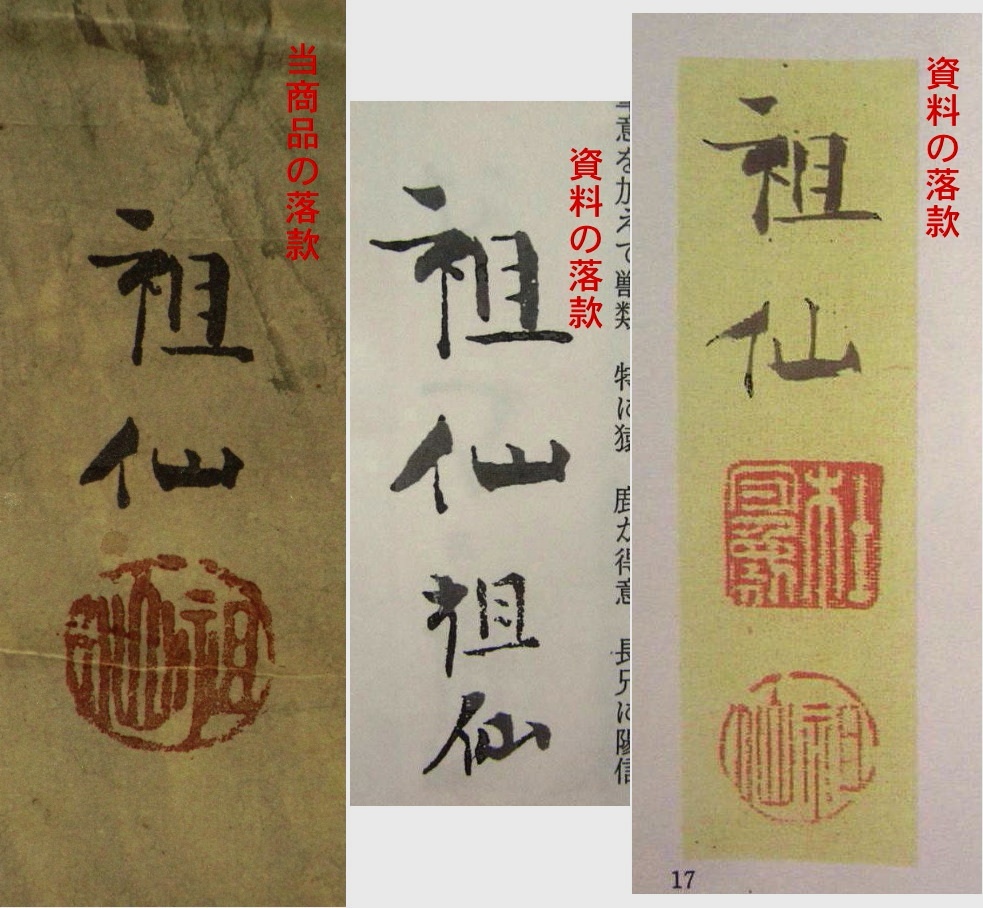 当商品の落款
祖仙
祖仙
資料の落款
意を加えて獣類 特に猿 鹿が得意 長兄に陽信
祖仙
祖仙
資料の落款
祖仙
祖仙
17